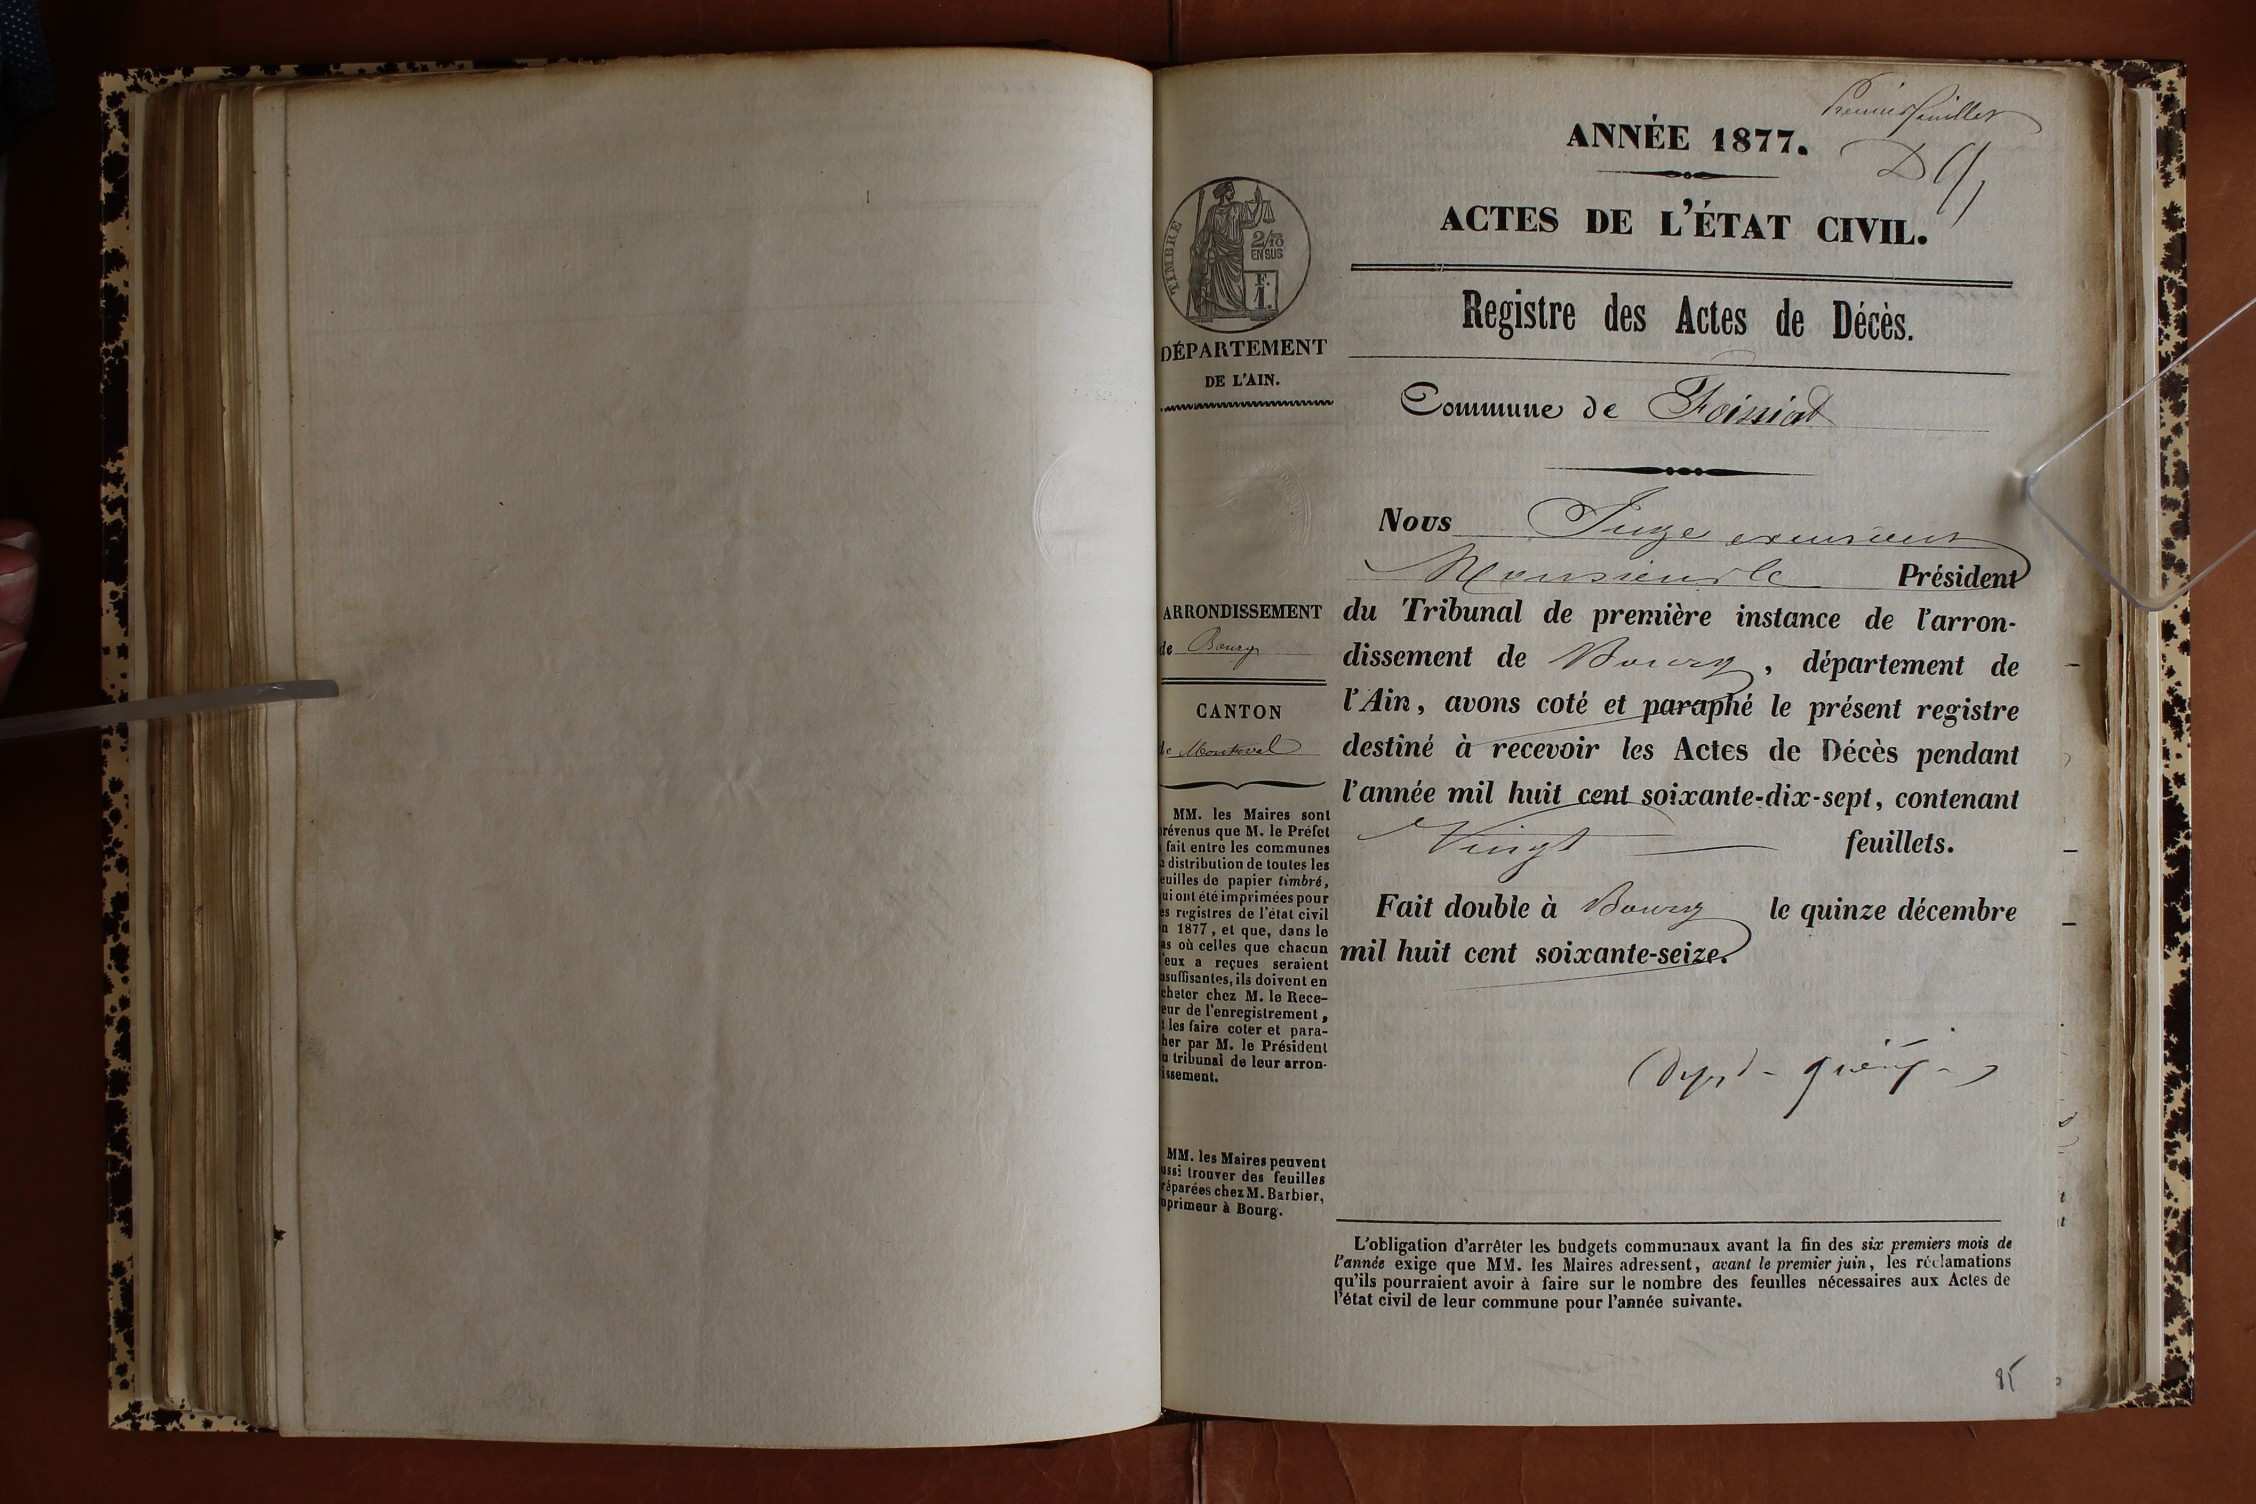 Premier feuillet
ANNÉE 1877.
ACTES DE L'ÉTAT CIVIL.
TIMBRE
2/10
EN SUS
F.
1.
DÉPARTEMENT
DE L'AIN.
ARRONDISSEMENT
de Bourg
CANTON
de Montrevel
MM. les Maires sont
révenus que M. le Préfet
fait entre les communes
distribution de toutes les
euilles de papier timbré,
ui ont été imprimées pour
es registres de l'état civil
n 1877, et que, dans le
as où celles que chacun
'eux a reçues seraient
nsuffisantes, ils doivent en
cheter chez M. le Rece-
eur de l'enregistrement,
les faire coter et para-
her par M. le Président
u tribunal de leur arron-
issement.
MM. les Maires peuvent
ussi trouver des feuilles
réparées chez M. Barbier,
mprimeur à Bourg.
Registre des Actes de Décès.
Commune de Foissiat
Nous Juge exerçant
Monsieur le Président
du Tribunal de première instance de l'arron-
dissement de Bourg, département de
l'Ain, avons coté et paraphé le présent registre
destiné à recevoir les Actes de Décès pendant
l'année mil huit cent soixante-dix-sept, contenant
Vingt feuillets.
Fait double à Bourg le quinze décembre
mil huit cent soixante-seize.
L'obligation d'arrêter les budgets communaux avant la fin des six premiers mois de
l'année exige que MM. les Maires adressent, avant le premier juin, les réclamations
qu'ils pourraient avoir à faire sur le nombre des feuilles nécessaires aux Actes de
l'état civil de leur commune pour l'année suivante.
85